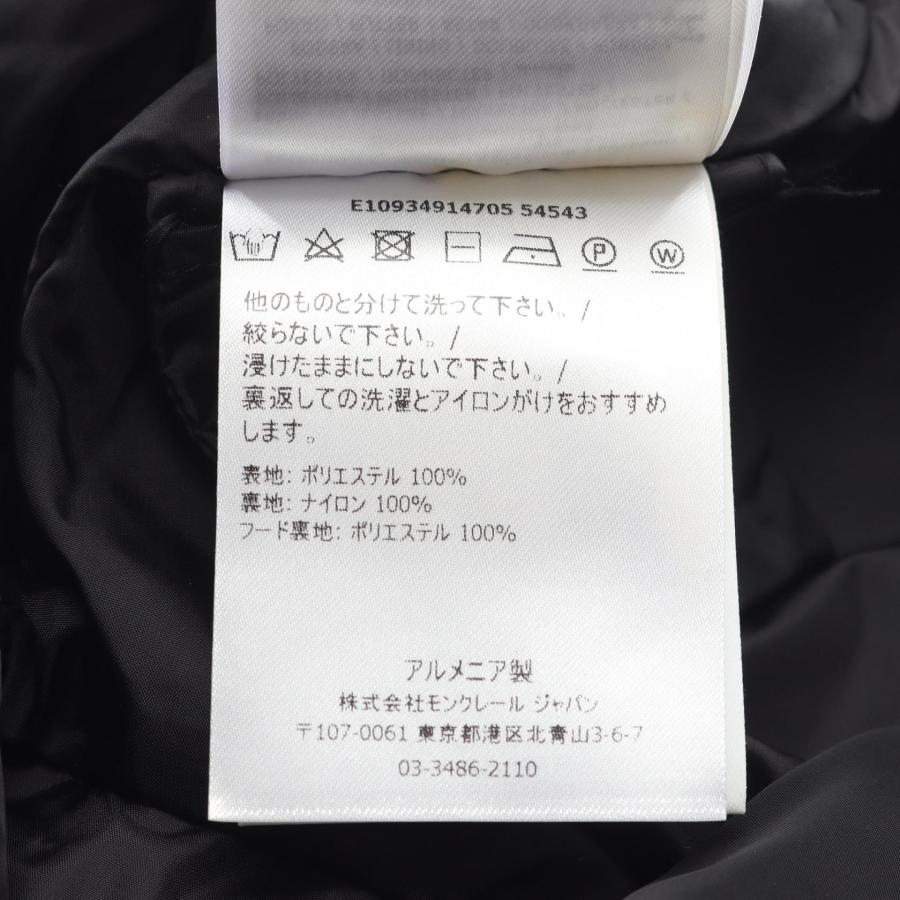 E10934914705 54543
P
W
他のものと分けて洗って下さい。/
絞らないで下さい。/
浸けたままにしないで下さい。/
裏返しての洗濯とアイロンがけをおすすめ
します。
表地: ポリエステル 100%
裏地: ナイロン 100%
フード裏地: ポリエステル 100%
アルメニア製
株式会社モンクレール ジャパン
〒107-0061 東京都港区北青山3-6-7
03-3486-2110